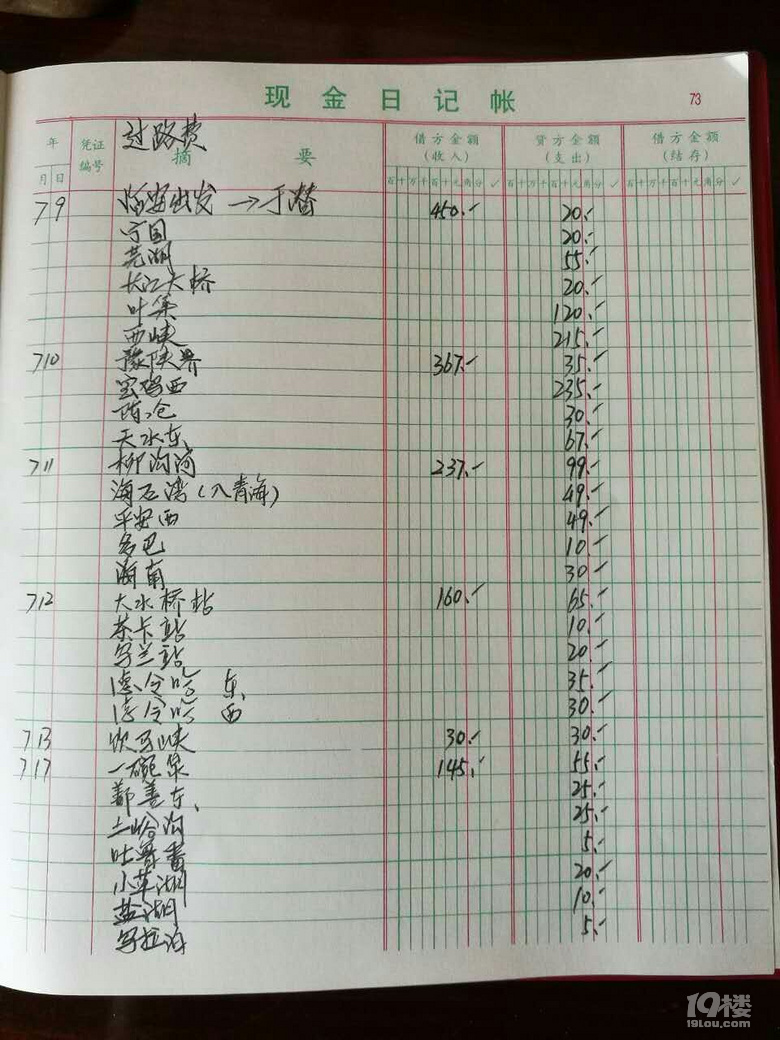 现金日记帐
73
年 凭证编号 过路费 借方金额 贷方金额 借方金额
月 日 摘要 (收入) (支出) (结存)
百十万千百十元角分✓ 百十万千百十元角分✓ 百十万千百十元角分✓
7 9 临安出发→于潜 450.- 20.-
宁国 20.-
芜湖 55.-
长江大桥 20.-
叶集 120.-
西峡 215.-
7 10 豫陕界 367.- 35.-
宝鸡西 235.-
陈仓 30.-
天水东 67.-
7 11 柳沟河 237.- 99.-
海石湾(入青海) 49.-
平安西 49.-
多巴 10.-
海南 30.-
7 12 大水桥站 160.- 65.-
茶卡站 10.-
乌兰站 20.-
德令哈 东 35.-
德令哈 西 30.-
7 13 饮马峡 30.- 30.-
7 17 一碗泉 145.- 55.-
鄯善东 25.-
土峪沟 25.-
吐鲁番 5.-
小草湖 20.-
盐湖 10.-
乌拉泊 5.-
19楼
19lou.com